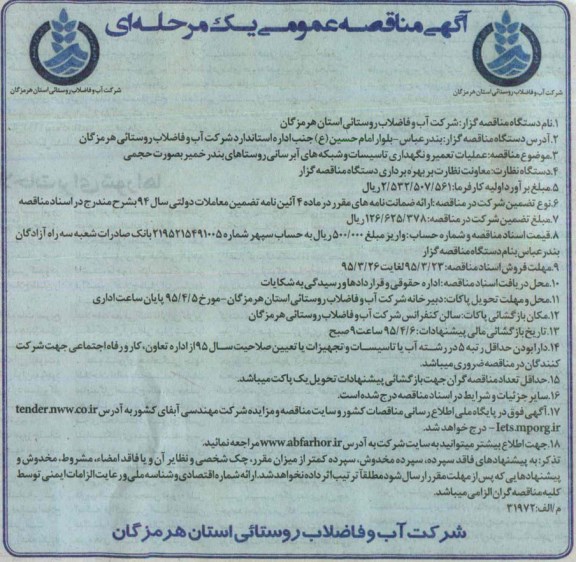 آگهی مناقصه عمومی یک مرحله‌ای
شرکت آب و فاضلاب روستائی استان هرمزگان
شرکت آب و فاضلاب روستائی استان هرمزگان
۱.نام دستگاه مناقصه گزار: شرکت آب و فاضلاب روستائی استان هرمزگان
۲.آدرس دستگاه مناقصه گزار: بندرعباس-بلوار امام حسین (ع) جنب اداره استاندارد شرکت آب و فاضلاب روستائی هرمزگان
۳.موضوع مناقصه: عملیات تعمیر و نگهداری تاسیسات و شبکه های آبرسانی روستاهای بندر خمیر بصورت حجمی
۴.دستگاه نظارت: معاونت نظارت بر بهره برداری دستگاه مناقصه گزار
۵.مبلغ برآورد اولیه کارفرما: ۲/۵۳۲/۵۰۷/۵۶۱ ریال
۶.نوع تضمین شرکت در مناقصه: ارائه ضمانت نامه های مقرر در ماده ۴ آئین نامه تضمین معاملات دولتی سال ۹۴ بشرح مندرج در اسناد مناقصه
۷.مبلغ تضمین شرکت در مناقصه: ۱۲۶/۶۲۵/۳۷۸ ریال
۸.قیمت اسناد مناقصه و شماره حساب: واریز مبلغ ۵۰۰/۰۰۰ ریال به حساب سپهر شماره ۲۱۹۵۲۱۵۴۹۱۰۰۵ بانک صادرات شعبه سه راه آزادگان
بندرعباس بنام دستگاه مناقصه گزار
۹.مهلت فروش اسناد مناقصه: ۹۵/۳/۲۳ لغایت ۹۵/۳/۲۶
۱۰.محل دریافت اسناد مناقصه: اداره حقوقی و قراردادها و رسیدگی به شکایات
۱۱.محل و مهلت تحویل پاکات: دبیرخانه شرکت آب و فاضلاب روستائی استان هرمزگان - مورخ ۹۵/۴/۵ پایان ساعت اداری
۱۲.مکان بازگشائی پاکات: سالن کنفرانس شرکت آب و فاضلاب روستائی هرمزگان
۱۳.تاریخ بازگشائی مالی پیشنهادات: ۹۵/۴/۶ ساعت ۹ صبح
۱۴.دارا بودن حداقل رتبه ۵ در رشته آب یا تاسیسات و تجهیزات یا تعیین صلاحیت سال ۹۵ از اداره تعاون، کار و رفاه اجتماعی جهت شرکت
کنندگان در مناقصه ضروری میباشد.
۱۵.حداقل تعداد مناقصه گران جهت بازگشائی پیشنهادات تحویل یک پاکت میباشد.
۱۶.سایر جزئیات و شرایط در اسناد مناقصه درج شده است.
۱۷.آگهی فوق در پایگاه ملی اطلاع رسانی مناقصات کشور و سایت مناقصه و مزایده شرکت مهندسی آبفای کشور به آدرس tender.nww.co.ir
Iets.mporg.ir – درج خواهد شد.
۱۸.جهت اطلاع بیشتر میتوانید به سایت شرکت به آدرس www.abfarhor.ir مراجعه نمائید.
تذکر: به پیشنهادهای فاقد سپرده، سپرده مخدوش، سپرده کمتر از میزان مقرر، چک شخصی و نظایر آن و یا فاقد امضاء، مشروط، مخدوش و
پیشنهادهایی که پس از مهلت مقرر ارسال شود مطلقاً ترتیب اثر داده نخواهد شد. ارائه شماره اقتصادی و شناسه ملی و رعایت الزامات ایمنی توسط
کلیه مناقصه گران الزامی میباشد.
م/الف: ۳۱۹۷۲
شرکت آب و فاضلاب روستائی استان هرمزگان